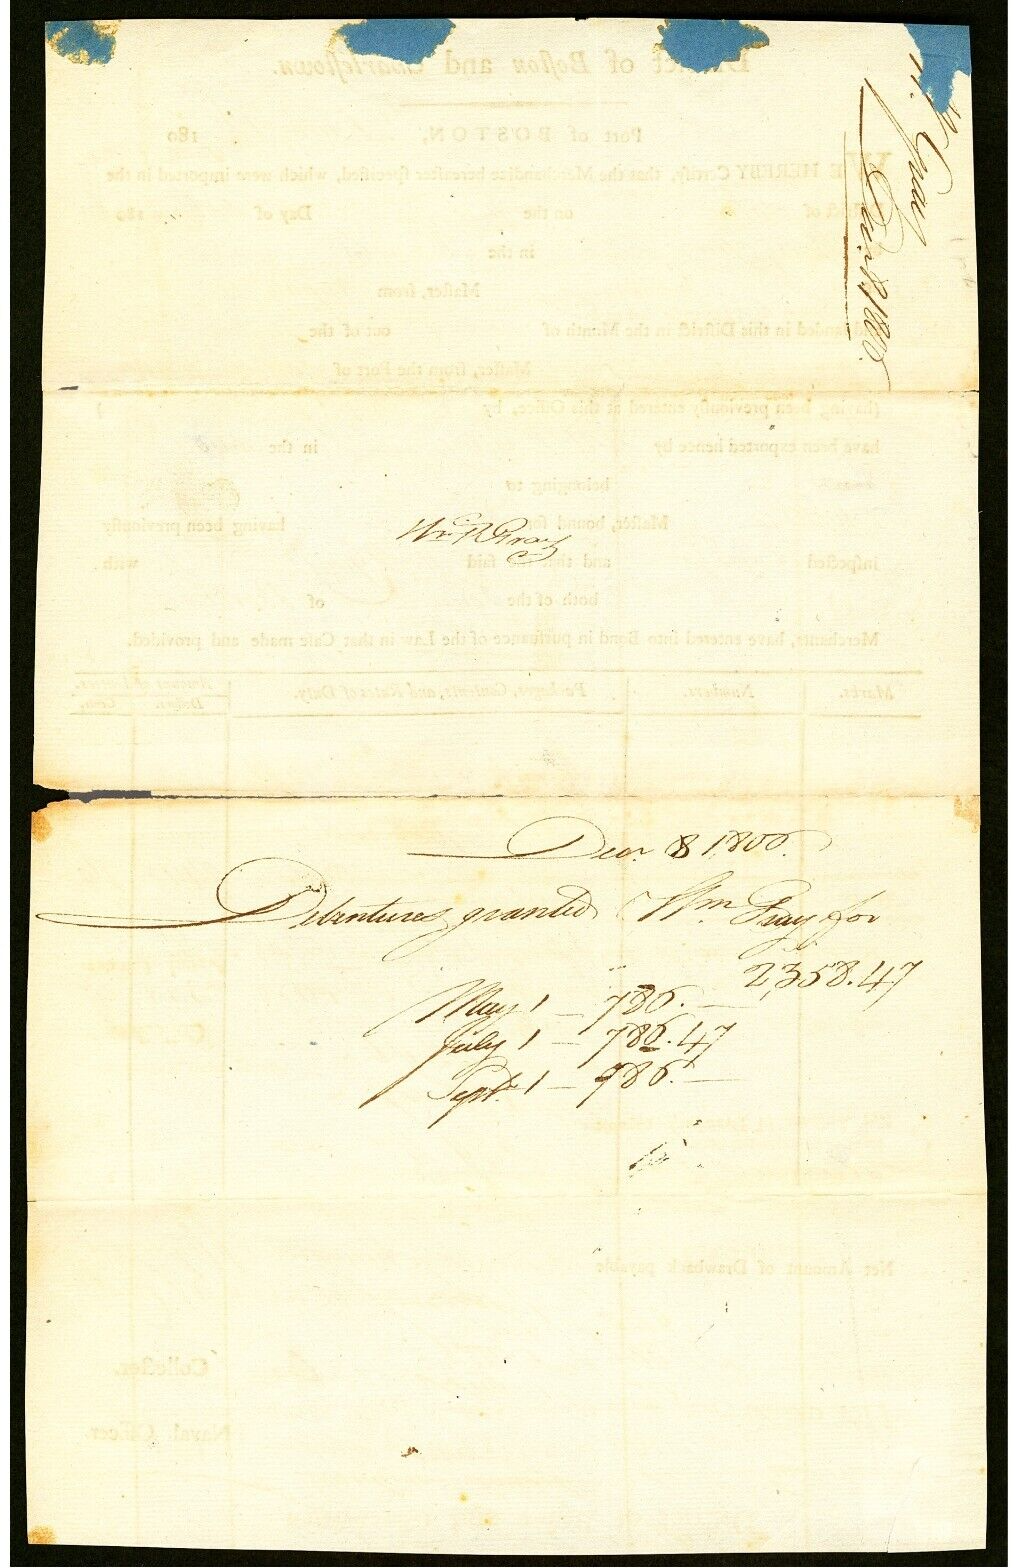 Wm R Gray
Decr. 8 1800.
Debentures granted Wm Gray for
2,358.47
May 1 — 786. —
July 1 — 786.47
Sept. 1 — 786. —
Gray
Decr. 8, 1800.
District of Boston and Charlestown.
Port of BOSTON, 180
WE HEREBY Certify, that the Merchandize hereafter specified, which were imported in the
District of on the Day of 180
in the
Master, from
and landed in this District in the Month of out of the
Master, from the Port of
(having been previously entered at this Office, by )
have been exported hence by in the
belonging to
Master, bound for having been previously
inspected and that the said with
both of the of
Merchants, have entered into Bond in pursuance of the Law in that Case made and provided.
Marks. Numbers. Packages, Contents, and Rates of Duty. Amount of Duties.
Dollars. Cents.
Net Amount of Drawback payable
Collector.
Naval Officer.